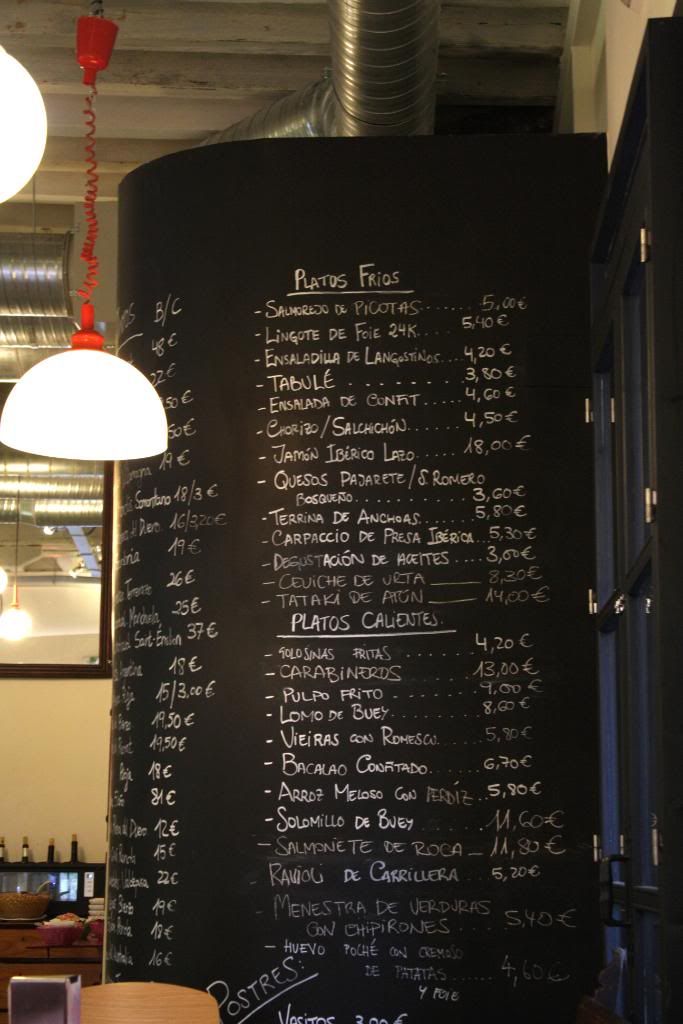 B/C
48€
22€
50€
50€
19€
Somontano 18/3€
Del Duero 16/3,20€
19€
26€
25€
Saint-Emilion 37€
18€
Rioja 15/3,00€
19,50€
19,50€
Rioja 18€
81€
Duero 12€
15€
22€
19€
18€
16€
PLATOS FRIOS
- SALMOREJO DE PICOTAS....... 5,00€
- LINGOTE DE FOIE 24K..... 5,40€
- ENSALADILLA DE LANGOSTINOS.... 4,20€
- TABULÉ ......... 3,80€
- ENSALADA DE CONFIT..... 4,60€
- CHORIZO/SALCHICHÓN...... 4,50€
- JAMÓN IBÉRICO LAZO...... 18,00€
- QUESOS PAJARETE/S. ROMERO
BOSQUEÑO............ 3,60€
- TERRINA DE ANCHOAS...... 5,80€
- CARPACCIO DE PRESA IBÉRICA.. 5,30€
- DEGUSTACIÓN DE ACEITES.... 3,00€
- CEVICHE DE URTA ____ 8,30€
- TATAKI DE ATÚN ____ 14,00€
PLATOS CALIENTES.
- GOLOSINAS FRITAS ........ 4,20€
- CARABINEROS ........ 13,00€
- PULPO FRITO ......... 9,00€
- LOMO DE BUEY......... 8,60€
- VIEIRAS CON ROMESCU..... 5,80€
- BACALAO CONFITADO...... 6,70€
- ARROZ MELOSO CON PERDÍZ.. 5,80€
- SOLOMILLO DE BUEY ...... 11,60€
- SALMONETE DE ROCA _ 11,80€
- RAVIOLI DE CARRILLERA .... 5,20€
- MENESTRA DE VERDURAS
CON CHIPIRONES.... 5,40€
- HUEVO POCHÉ CON CREMOSO
DE PATATAS ...... 4,60€
Y FOIE
POSTRES:
VASITOS 3,00€